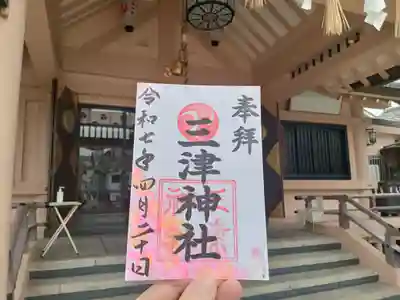 奉拝
三津神社
令和七年四月二十日